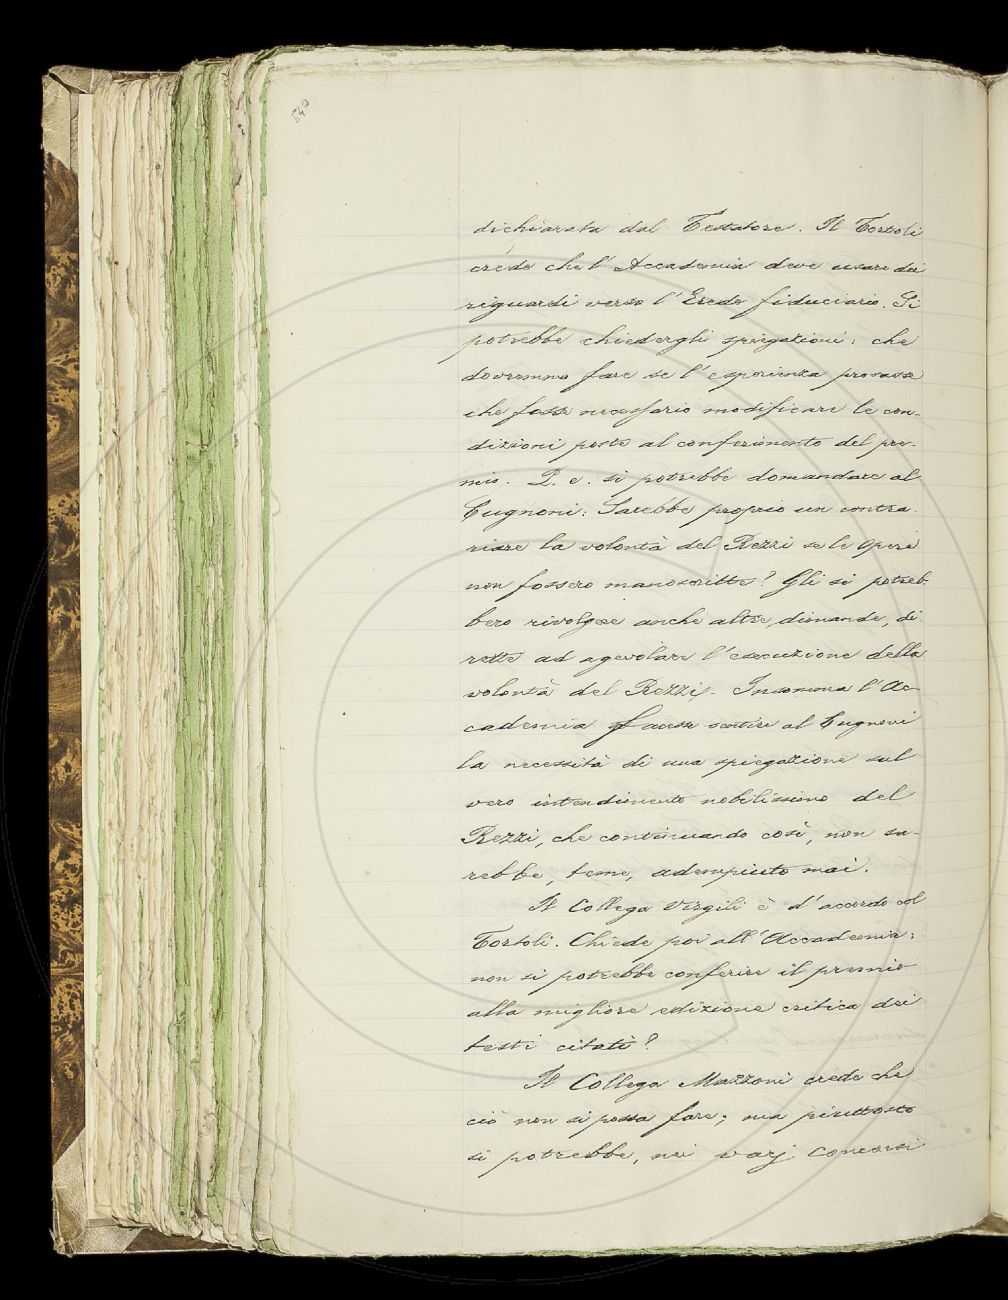 540
dichiarata dal Testatore. Il Tortoli
crede che l'Accademia deve usare dei
riguardi verso l'Erede fiduciario. Si
potrebbe chiedergli spiegazioni: che
dovremmo fare se l'esperienza provasse
che fosse necessario modificare le con-
dizioni poste al conferimento del pre-
mio. P. e. si potrebbe domandare al
Cugnoni: Sarebbe proprio un contra-
riare la volontà del Rezzi se le opere
non fossero manoscritte? Gli si potreb-
bero rivolgere anche altre dimande, di-
rette ad agevolare l'esecuzione della
volontà del Rezzi. Insomma l'Ac-
cademia faccia sentire al Cugnoni
la necessità di una spiegazione sul
vero intendimento nobilissimo del
Rezzi, che continuando così, non sa-
rebbe, teme, adempiuto mai.
Il Collega Virgili è d'accordo col
Tortoli. Chiede poi all'Accademia:
non si potrebbe conferire il premio
alla migliore edizione critica dei
testi citati?
Il Collega Mazzoni crede che
ciò non si possa fare; ma piuttosto
si potrebbe, nei varj concorsi